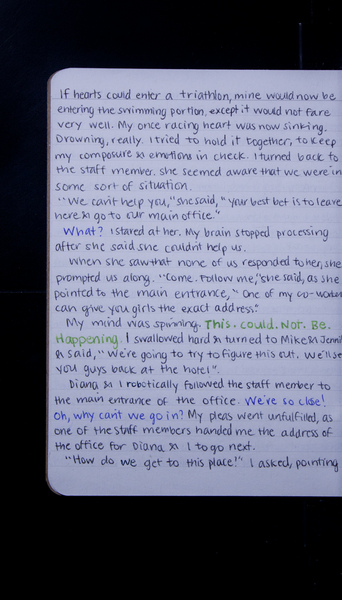 If hearts could enter a triathlon, mine would now be
entering the swimming portion, except it would not fare
very well. My once racing heart was now sinking.
Drowning, really. I tried to hold it together, to keep
my composure & emotions in check. I turned back to
the staff member. She seemed aware that we were in
some sort of situation.
"We can't help you," she said, "Your best bet is to leave
here & go to our main office."
What? I stared at her. My brain stopped processing
after she said she couldn't help us.
When she saw that none of us responded to her, she
prompted us along. "Come. Follow me," she said, as she
pointed to the main entrance, "One of my co-worker
can give you girls the exact address."
My mind was spinning. This. Could. Not. Be.
Happening. I swallowed hard & turned to Mike & Jenni
& said, "We're going to try to figure this out. We'll see
you guys back at the hotel".
Diana & I robotically followed the staff member to
the main entrance of the office. We're so close!
Oh, why can't we go in? My pleas went unfulfilled, as
one of the staff members handed me the address of
the office for Diana & I to go next.
"How do we get to this place!" I asked, pointing